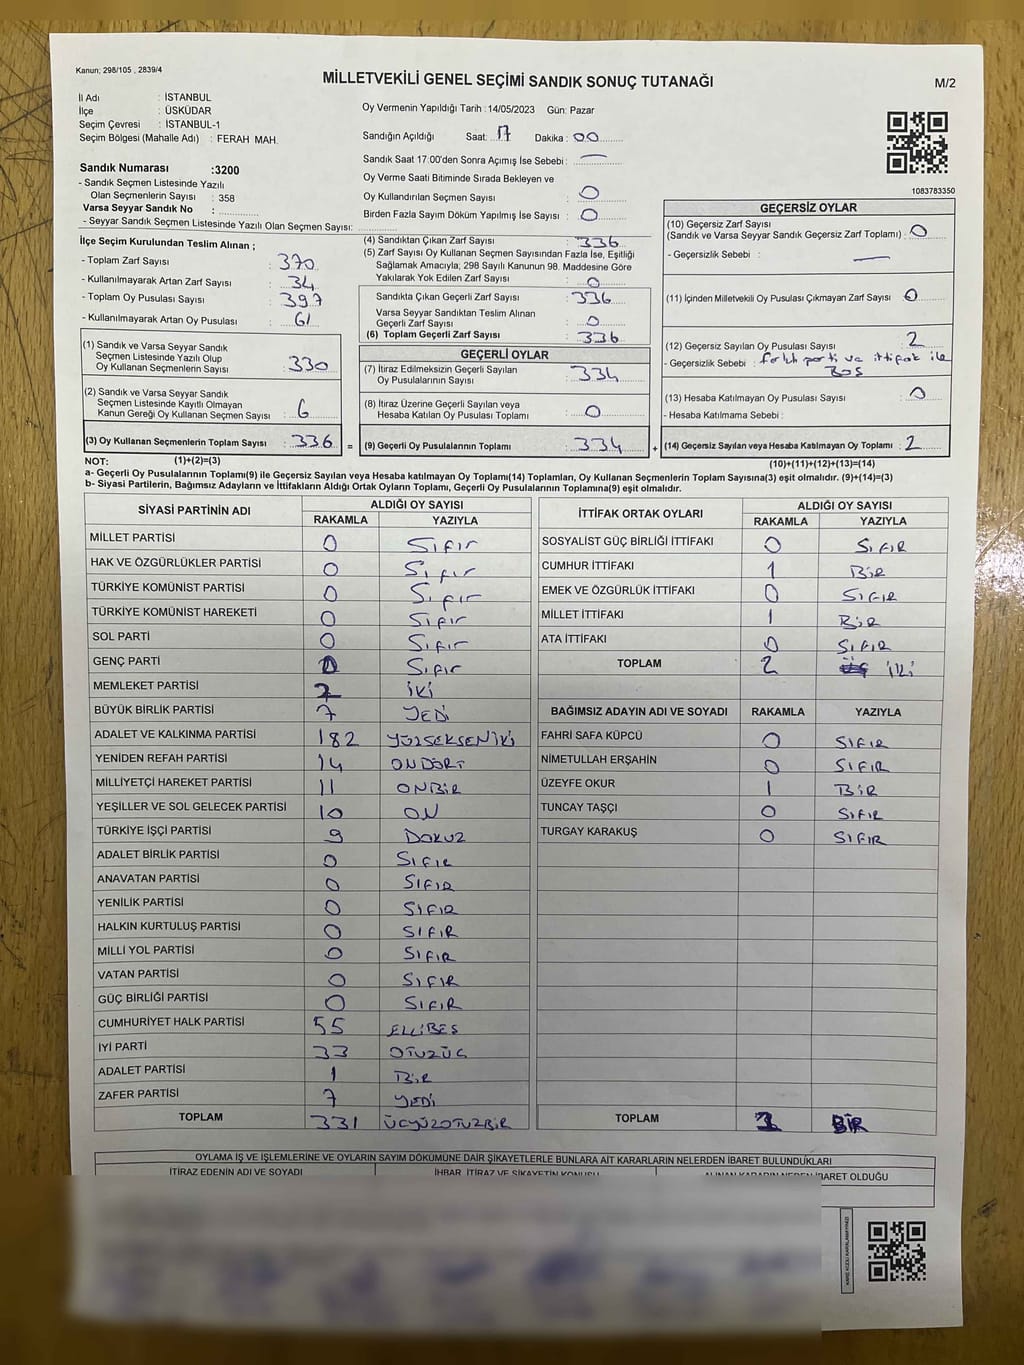 Kanun; 298/105 , 2839/4
MİLLETVEKİLİ GENEL SEÇİMİ SANDIK SONUÇ TUTANAĞI
M/2
İl Adı : İSTANBUL
İlçe : ÜSKÜDAR
Seçim Çevresi : İSTANBUL-1
Seçim Bölgesi (Mahalle Adı) : FERAH MAH.
Sandık Numarası :3200
- Sandık Seçmen Listesinde Yazılı
Olan Seçmenlerin Sayısı : 358
Varsa Seyyar Sandık No :
- Seyyar Sandık Seçmen Listesinde Yazılı Olan Seçmen Sayısı:
Oy Vermenin Yapıldığı Tarih :14/05/2023 Gün: Pazar
Sandığın Açıldığı Saat: 17 Dakika : 00
Sandık Saat 17:00'den Sonra Açımış İse Sebebi : —
Oy Verme Saati Bitiminde Sırada Bekleyen ve
Oy Kullandırılan Seçmen Sayısı : 0
Birden Fazla Sayım Döküm Yapılmış İse Sayısı : 0
1083783350
İlçe Seçim Kurulundan Teslim Alınan ;
- Toplam Zarf Sayısı : 370
- Kullanılmayarak Artan Zarf Sayısı : 34
- Toplam Oy Pusulası Sayısı : 397
- Kullanılmayarak Artan Oy Pusulası : 61
(1) Sandık ve Varsa Seyyar Sandık
Seçmen Listesinde Yazılı Olup
Oy Kullanan Seçmenlerin Sayısı : 330
(2) Sandık ve Varsa Seyyar Sandık
Seçmen Listesinde Kayıtlı Olmayan
Kanun Gereği Oy Kullanan Seçmen Sayısı : 6
(3) Oy Kullanan Seçmenlerin Toplam Sayısı : 336 =
(1)+(2)=(3)
(4) Sandıktan Çıkan Zarf Sayısı : 336
(5) Zarf Sayısı Oy Kullanan Seçmen Sayısından Fazla İse, Eşitliği
Sağlamak Amacıyla; 298 Sayılı Kanunun 98. Maddesine Göre
Yakılarak Yok Edilen Zarf Sayısı : 0
Sandıkta Çıkan Geçerli Zarf Sayısı : 336
Varsa Seyyar Sandıktan Teslim Alınan
Geçerli Zarf Sayısı : 0
(6) Toplam Geçerli Zarf Sayısı : 336
GEÇERLİ OYLAR
(7) İtiraz Edilmeksizin Geçerli Sayılan
Oy Pusulalarının Sayısı : 334
(8) İtiraz Üzerine Geçerli Sayılan veya
Hesaba Katılan Oy Pusulası Toplamı : 0
(9) Geçerli Oy Pusulalarının Toplamı : 334 +
GEÇERSİZ OYLAR
(10) Geçersiz Zarf Sayısı
(Sandık ve Varsa Seyyar Sandık Geçersiz Zarf Toplamı) : 0
- Geçersizlik Sebebi : —
(11) İçinden Milletvekili Oy Pusulası Çıkmayan Zarf Sayısı : 0
(12) Geçersiz Sayılan Oy Pusulası Sayısı : 2
- Geçersizlik Sebebi : farklı parti ve ittifak ile
BOŞ
(13) Hesaba Katılmayan Oy Pusulası Sayısı : 0
- Hesaba Katılmama Sebebi :
(14) Geçersiz Sayılan veya Hesaba Katılmayan Oy Toplamı : 2
(10)+(11)+(12)+(13)=(14)
NOT:
a- Geçerli Oy Pusulalarının Toplamı(9) ile Geçersiz Sayılan veya Hesaba katılmayan Oy Toplamı(14) Toplamları, Oy Kullanan Seçmenlerin Toplam Sayısına(3) eşit olmalıdır. (9)+(14)=(3)
b- Siyasi Partilerin, Bağımsız Adayların ve İttifakların Aldığı Ortak Oyların Toplamı, Geçerli Oy Pusulalarının Toplamına(9) eşit olmalıdır.
SİYASİ PARTİNİN ADI ALDIĞI OY SAYISI
RAKAMLA YAZIYLA
MİLLET PARTİSİ 0 Sıfır
HAK VE ÖZGÜRLÜKLER PARTİSİ 0 Sıfır
TÜRKİYE KOMÜNİST PARTİSİ 0 Sıfır
TÜRKİYE KOMÜNİST HAREKETİ 0 Sıfır
SOL PARTİ 0 Sıfır
GENÇ PARTİ 0 Sıfır
MEMLEKET PARTİSİ 2 İKİ
BÜYÜK BİRLİK PARTİSİ 7 YEDİ
ADALET VE KALKINMA PARTİSİ 182 YÜZSEKSENİKİ
YENİDEN REFAH PARTİSİ 14 ONDÖRT
MİLLİYETÇİ HAREKET PARTİSİ 11 ONBİR
YEŞİLLER VE SOL GELECEK PARTİSİ 10 ON
TÜRKİYE İŞÇİ PARTİSİ 9 DOKUZ
ADALET BİRLİK PARTİSİ 0 SIFIR
ANAVATAN PARTİSİ 0 SIFIR
YENİLİK PARTİSİ 0 SIFIR
HALKIN KURTULUŞ PARTİSİ 0 SIFIR
MİLLİ YOL PARTİSİ 0 SIFIR
VATAN PARTİSİ 0 SIFIR
GÜÇ BİRLİĞİ PARTİSİ 0 SIFIR
CUMHURİYET HALK PARTİSİ 55 ELLİBEŞ
İYİ PARTİ 33 OTUZÜÇ
ADALET PARTİSİ 1 BİR
ZAFER PARTİSİ 7 YEDİ
TOPLAM 331 ÜÇYÜZOTUZBİR
İTTİFAK ORTAK OYLARI ALDIĞI OY SAYISI
RAKAMLA YAZIYLA
SOSYALİST GÜÇ BİRLİĞİ İTTİFAKI 0 SIFIR
CUMHUR İTTİFAKI 1 BİR
EMEK VE ÖZGÜRLÜK İTTİFAKI 0 SIFIR
MİLLET İTTİFAKI 1 BİR
ATA İTTİFAKI 0 SIFIR
TOPLAM 2 İKİ
BAĞIMSIZ ADAYIN ADI VE SOYADI RAKAMLA YAZIYLA
FAHRİ SAFA KÜPCÜ 0 SIFIR
NİMETULLAH ERŞAHİN 0 SIFIR
ÜZEYFE OKUR 1 BİR
TUNCAY TAŞÇI 0 SIFIR
TURGAY KARAKUŞ 0 SIFIR
TOPLAM 1 BİR
OYLAMA İŞ VE İŞLEMLERİNE VE OYLARIN SAYIM DÖKÜMÜNE DAİR ŞİKAYETLERLE BUNLARA AİT KARARLARIN NELERDEN İBARET BULUNDUKLARI
İTİRAZ EDENİN ADI VE SOYADI İHBAR, İTİRAZ VE ŞİKAYETİN KONUSU ALINAN KARARIN NEDEN İBARET OLDUĞU